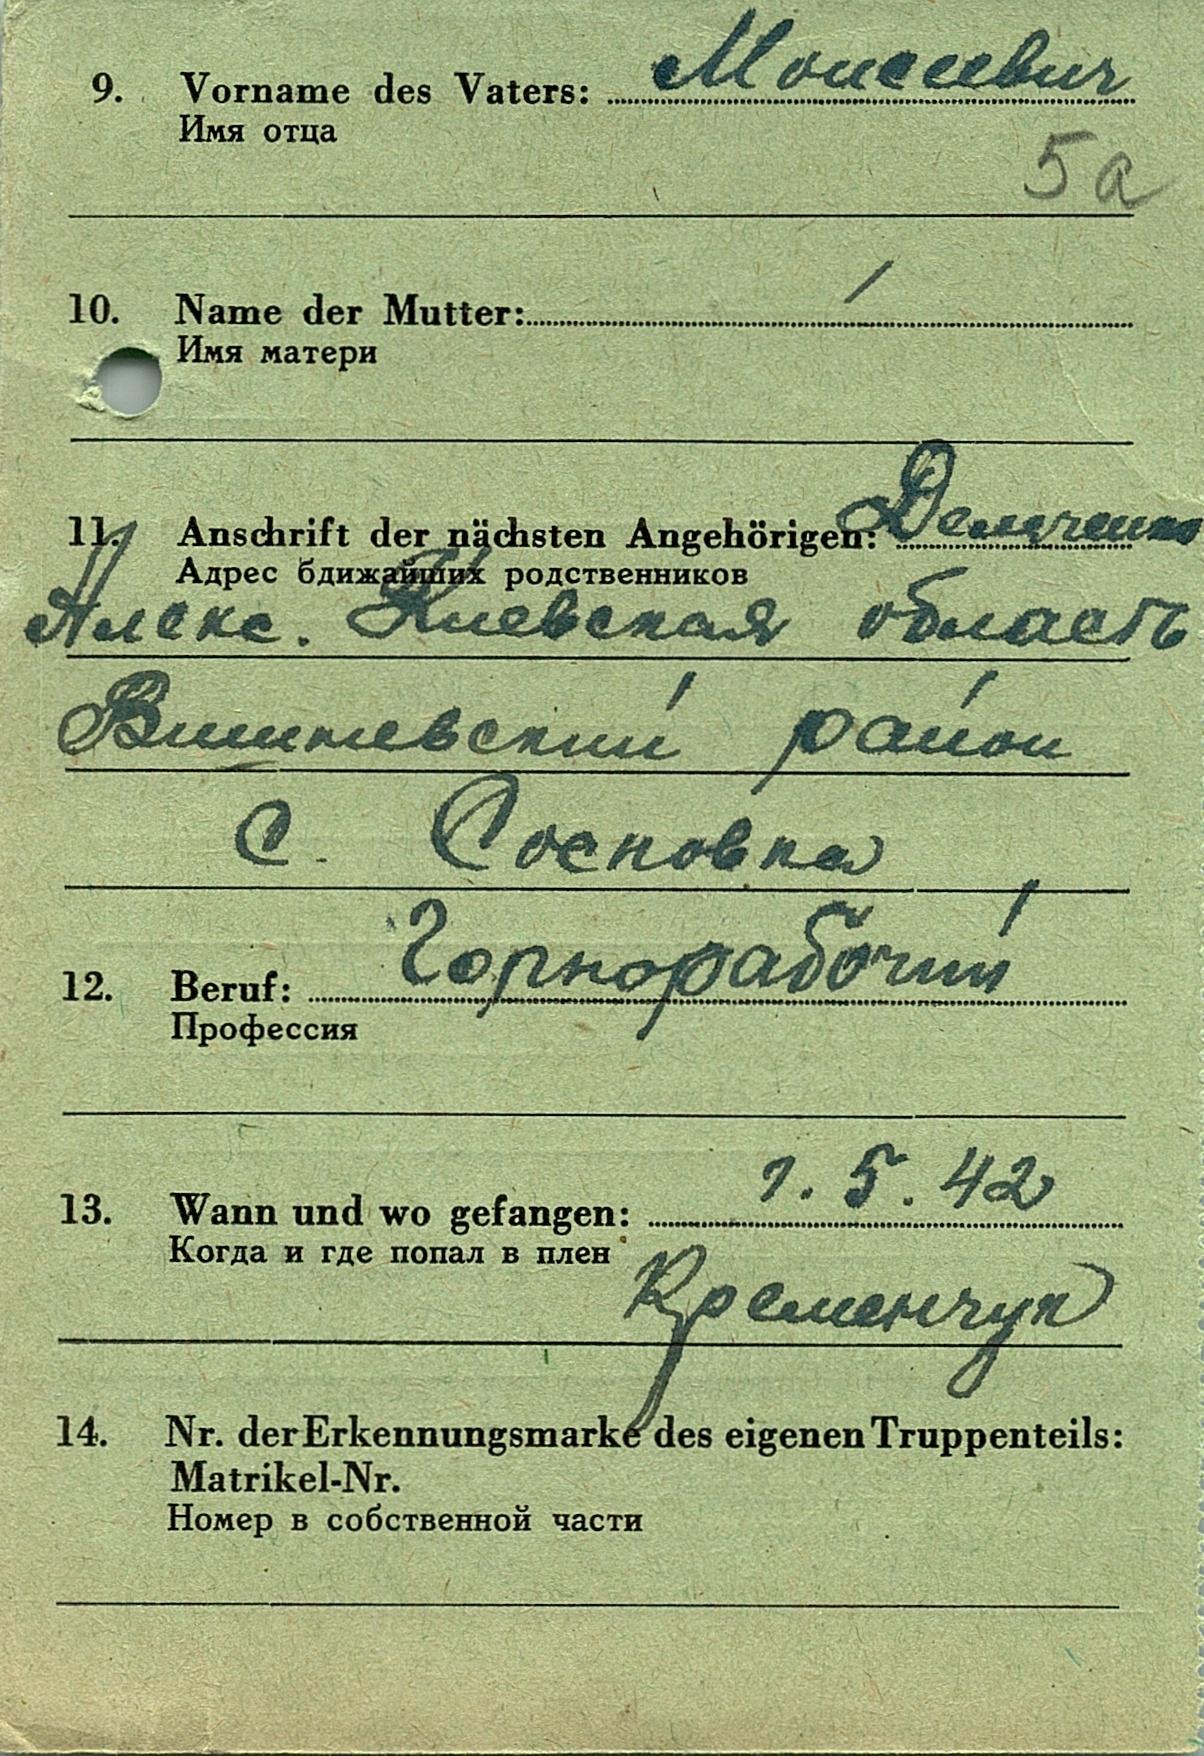 9. Vorname des Vaters: Моисеевич
Имя отца
5а
10. Name der Mutter: /
Имя матери
11. Anschrift der nächsten Angehörigen: Демченко
Адрес бдижайших родственников
Алекс. Киевская область
район
с. Сосновка
12. Beruf: Горнорабочий
Профессия
13. Wann und wo gefangen: 1. 5. 42
Когда и где попал в плен
Кременчук
14. Nr. der Erkennungsmarke des eigenen Truppenteils:
Matrikel-Nr.
Номер в собственной части